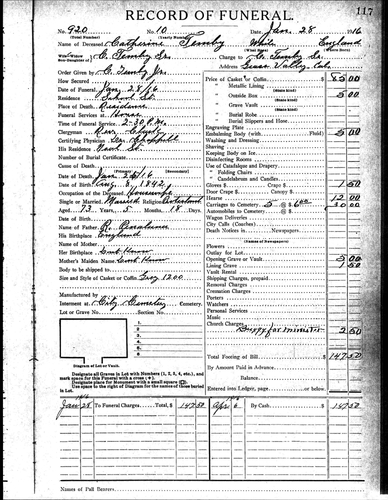 117
RECORD OF FUNERAL.
No. 920 No. 10 Date, Jan. 28 1916
(Total Number) (Yearly Number)
Name of Deceased Catherine Temby White England
Wife
Son-Daughter of C. Temby Sr. Charge to C. Temby Sr.
Order Given by C. Temby Jr. Address
How Secured
Date of Funeral Jan. 28/16
Residence
Place of Death Residence
Funeral Services at House
Time of Funeral Service 2-30 P.M.
Clergyman Rev.
Certifying Physician Dr.
His Residence
Number of Burial Certificate
Cause of Death
(Primary) (Secondary)
Date of Death Jan. 26/16
Date of Birth Aug. 8, 1842
Occupation of the Deceased Housewife
Single or Married Married Religion Protestant
Aged 73 Years 5 Months 18 Days
Name of Father R.
His Birthplace England
Name of Mother
Her Birthplace Dont Know
Mother's Maiden Name Dont Know
Body to be shipped to
Size and Style of Casket or Coffin Gray 1200
Manufactured by
Interment at City Cemetery Cemetery.
Lot or Grave No. Section No.
Diagram of Lot or Vault.
Designate all Graves in Lot with Numbers (1, 2, 3, 4, etc.), and
mark space for this Funeral with a cross (+).
Designate place for Monument with a small square (□).
Use space to the right of Diagram for names of those buried
in Lot.
Price of Casket or Coffin $ 85 00
" Metallic Lining
(State kind)
" Outside Box 5 00
(State kind)
" Grave Vault
(State kind)
" Burial Robe
" Burial Slippers and Hose
Engraving Plate
Embalming Body (with Fluid) 5 00
Washing and Dressing
Shaving
Keeping Body on Ice
Disinfecting Rooms
Use of Catafalque and Drapery
" Folding Chairs
" Candelabrum and Candles
Gloves $ Crape $ 1 50
Door Crape $ Canopy $
Hearse 12 00
Carriages to Cemetery 5 @ $ 6 00 30 00
Automobiles to Cemetery @ $
Wagon Deliveries
City Calls (Coaches)
Death Notices in Newspapers
(Names of Newspapers)
Flowers
Outlay for Lot
Opening Grave or Vault 5 00
Lining Grave 1 50
Vault Rental
Shipping Charges, prepaid
Removal Charges
Cremation Charges
Porters
Watchers
Personal Services
Music
Church Charges
Buggy for minister 2 50
Total Footing of Bill $ 147 50
By Amount Paid in Advance
Balance
Entered into Ledger, page or below
1916
Jan 28 To Funeral Charges 147 50 Apr 6 By Cash 147 50
Names of Pall Bearers